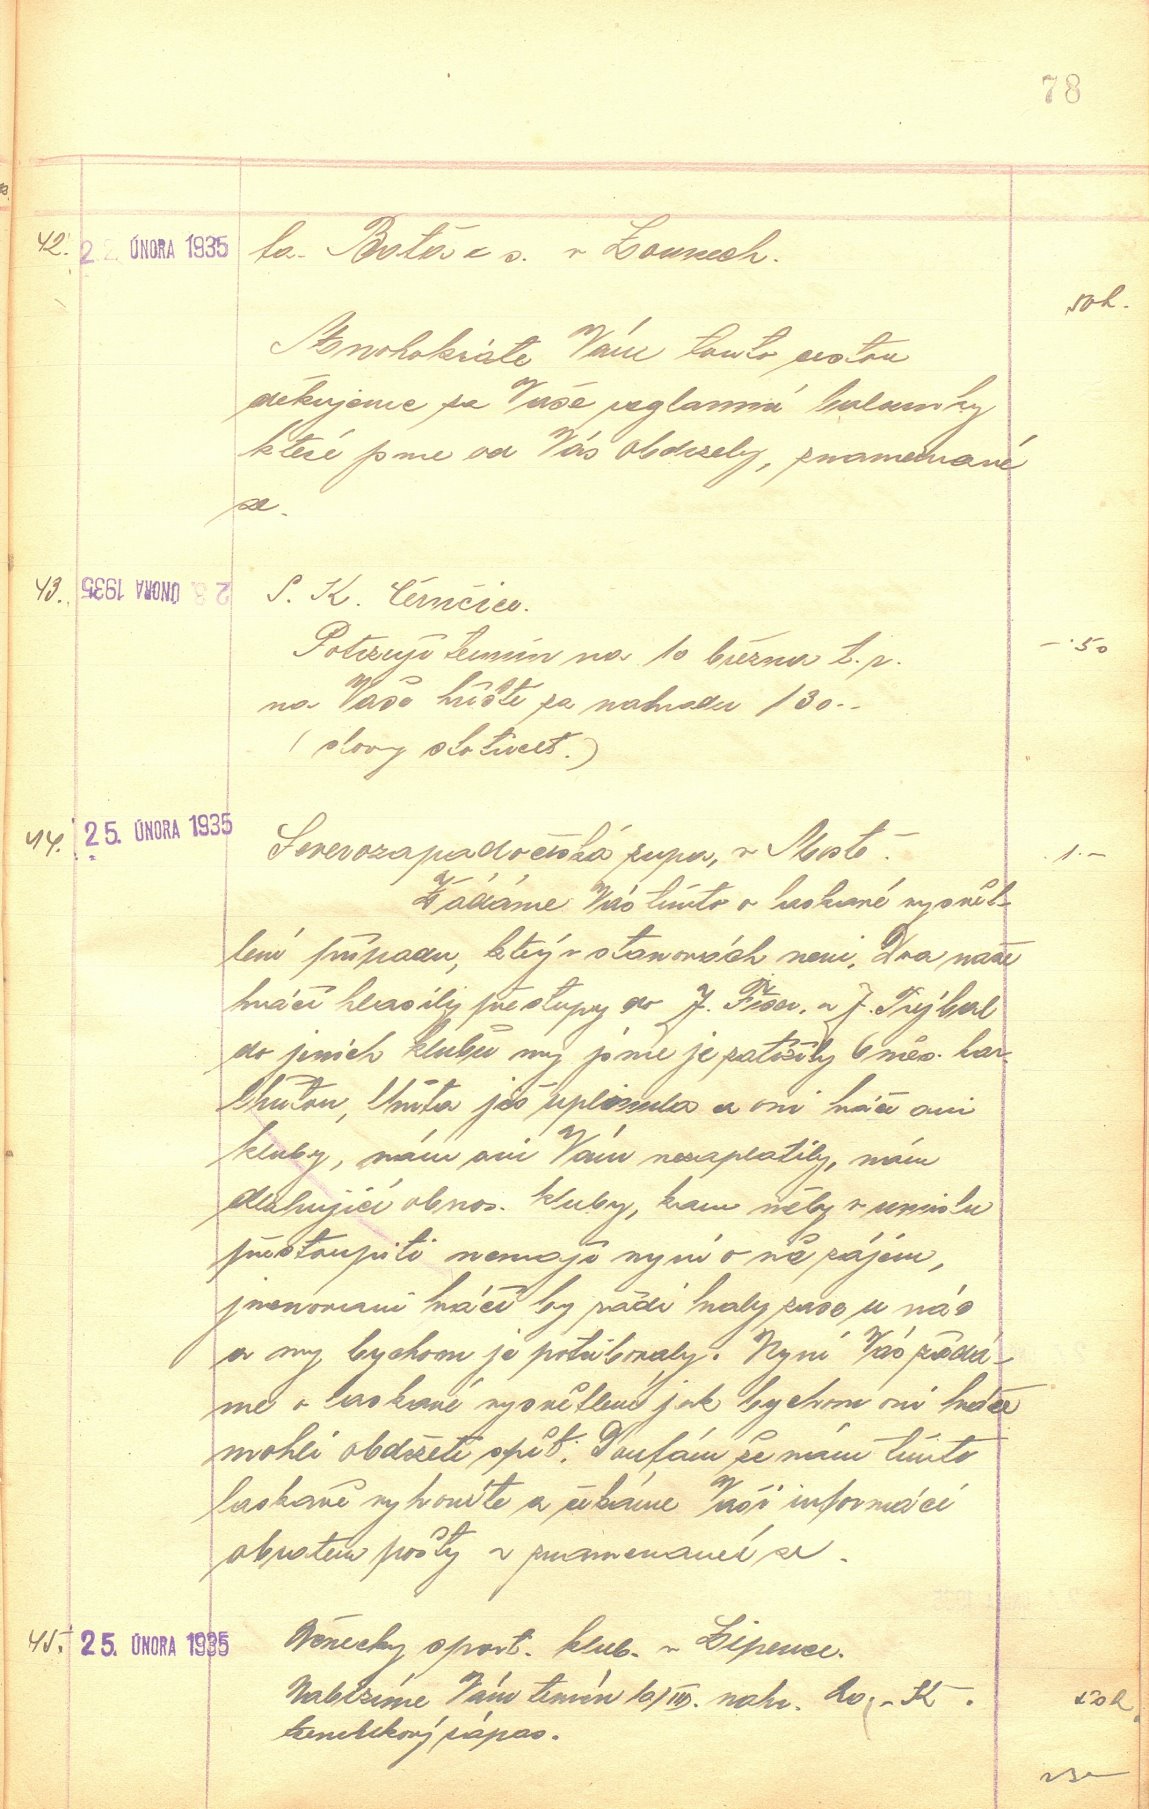 78
42. 22 ÚNORA 1935 fa. Baťa a s. v Lounech.
50h.
Mnohokráte Vám touto cestou
děkujeme za Vaše reglamná kalamky
které jsme od Vás obdržely, znamenáné
se.
43. 23. ÚNORA 1935 S. K. Černčice.
Potvrzuji termín na 10 března t. r. -·50
na Vaše hřiště za nahradu 130.-
(slovy stotřicet.)
44. 25. ÚNORA 1935 Severozapadočeská župa, v Mostě. 1.-
Žádáme Vás tímto o laskavé vysvět-
lení případu, který v stanovách neni. Dva naše
hráči hlasily přestupy J. Fišer. a J. Trýbal
do jiních klubů my jsme je zatížily 6 měs. kar.
lhůtou, lhůta již uplinula a oni hráči ani
kluby, nám ani Vám nezaplatily, nám
dluhující obnos. kluby, kam měly v umislu
přestoupiti nemají nyní o ně zájem,
jmenovaní hráči by rádi hraly zase u nás
a my bychom je potřebovaly. Nyní Vás žádá-
me o laskavé vysvětlení jak bychom oni hráče
mohli obdržeti spět. Doufám že nám tímto
laskavě vyhovíte a čekáme Vaší informáci
obratem pošty a znamenáneí se.
45. 25. ÚNORA 1935 Německy sport. klub. v Lipenci.
Nabízíme Vám termín 10/III. nahr. 20,- K.
50h.